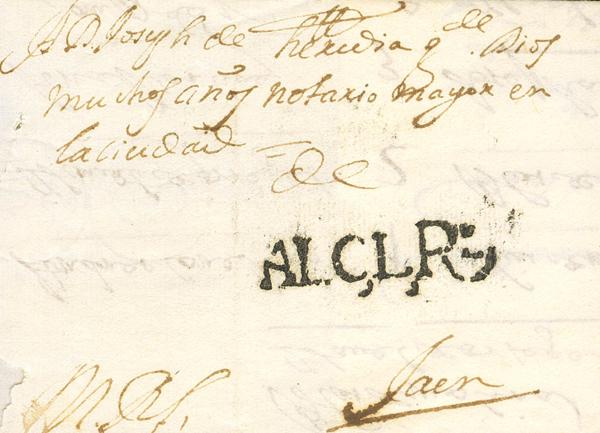 A D. Joseph de Heredia q de Dios
muchos años notario mayor en
la ciudad = de
ALCLR
Jaen